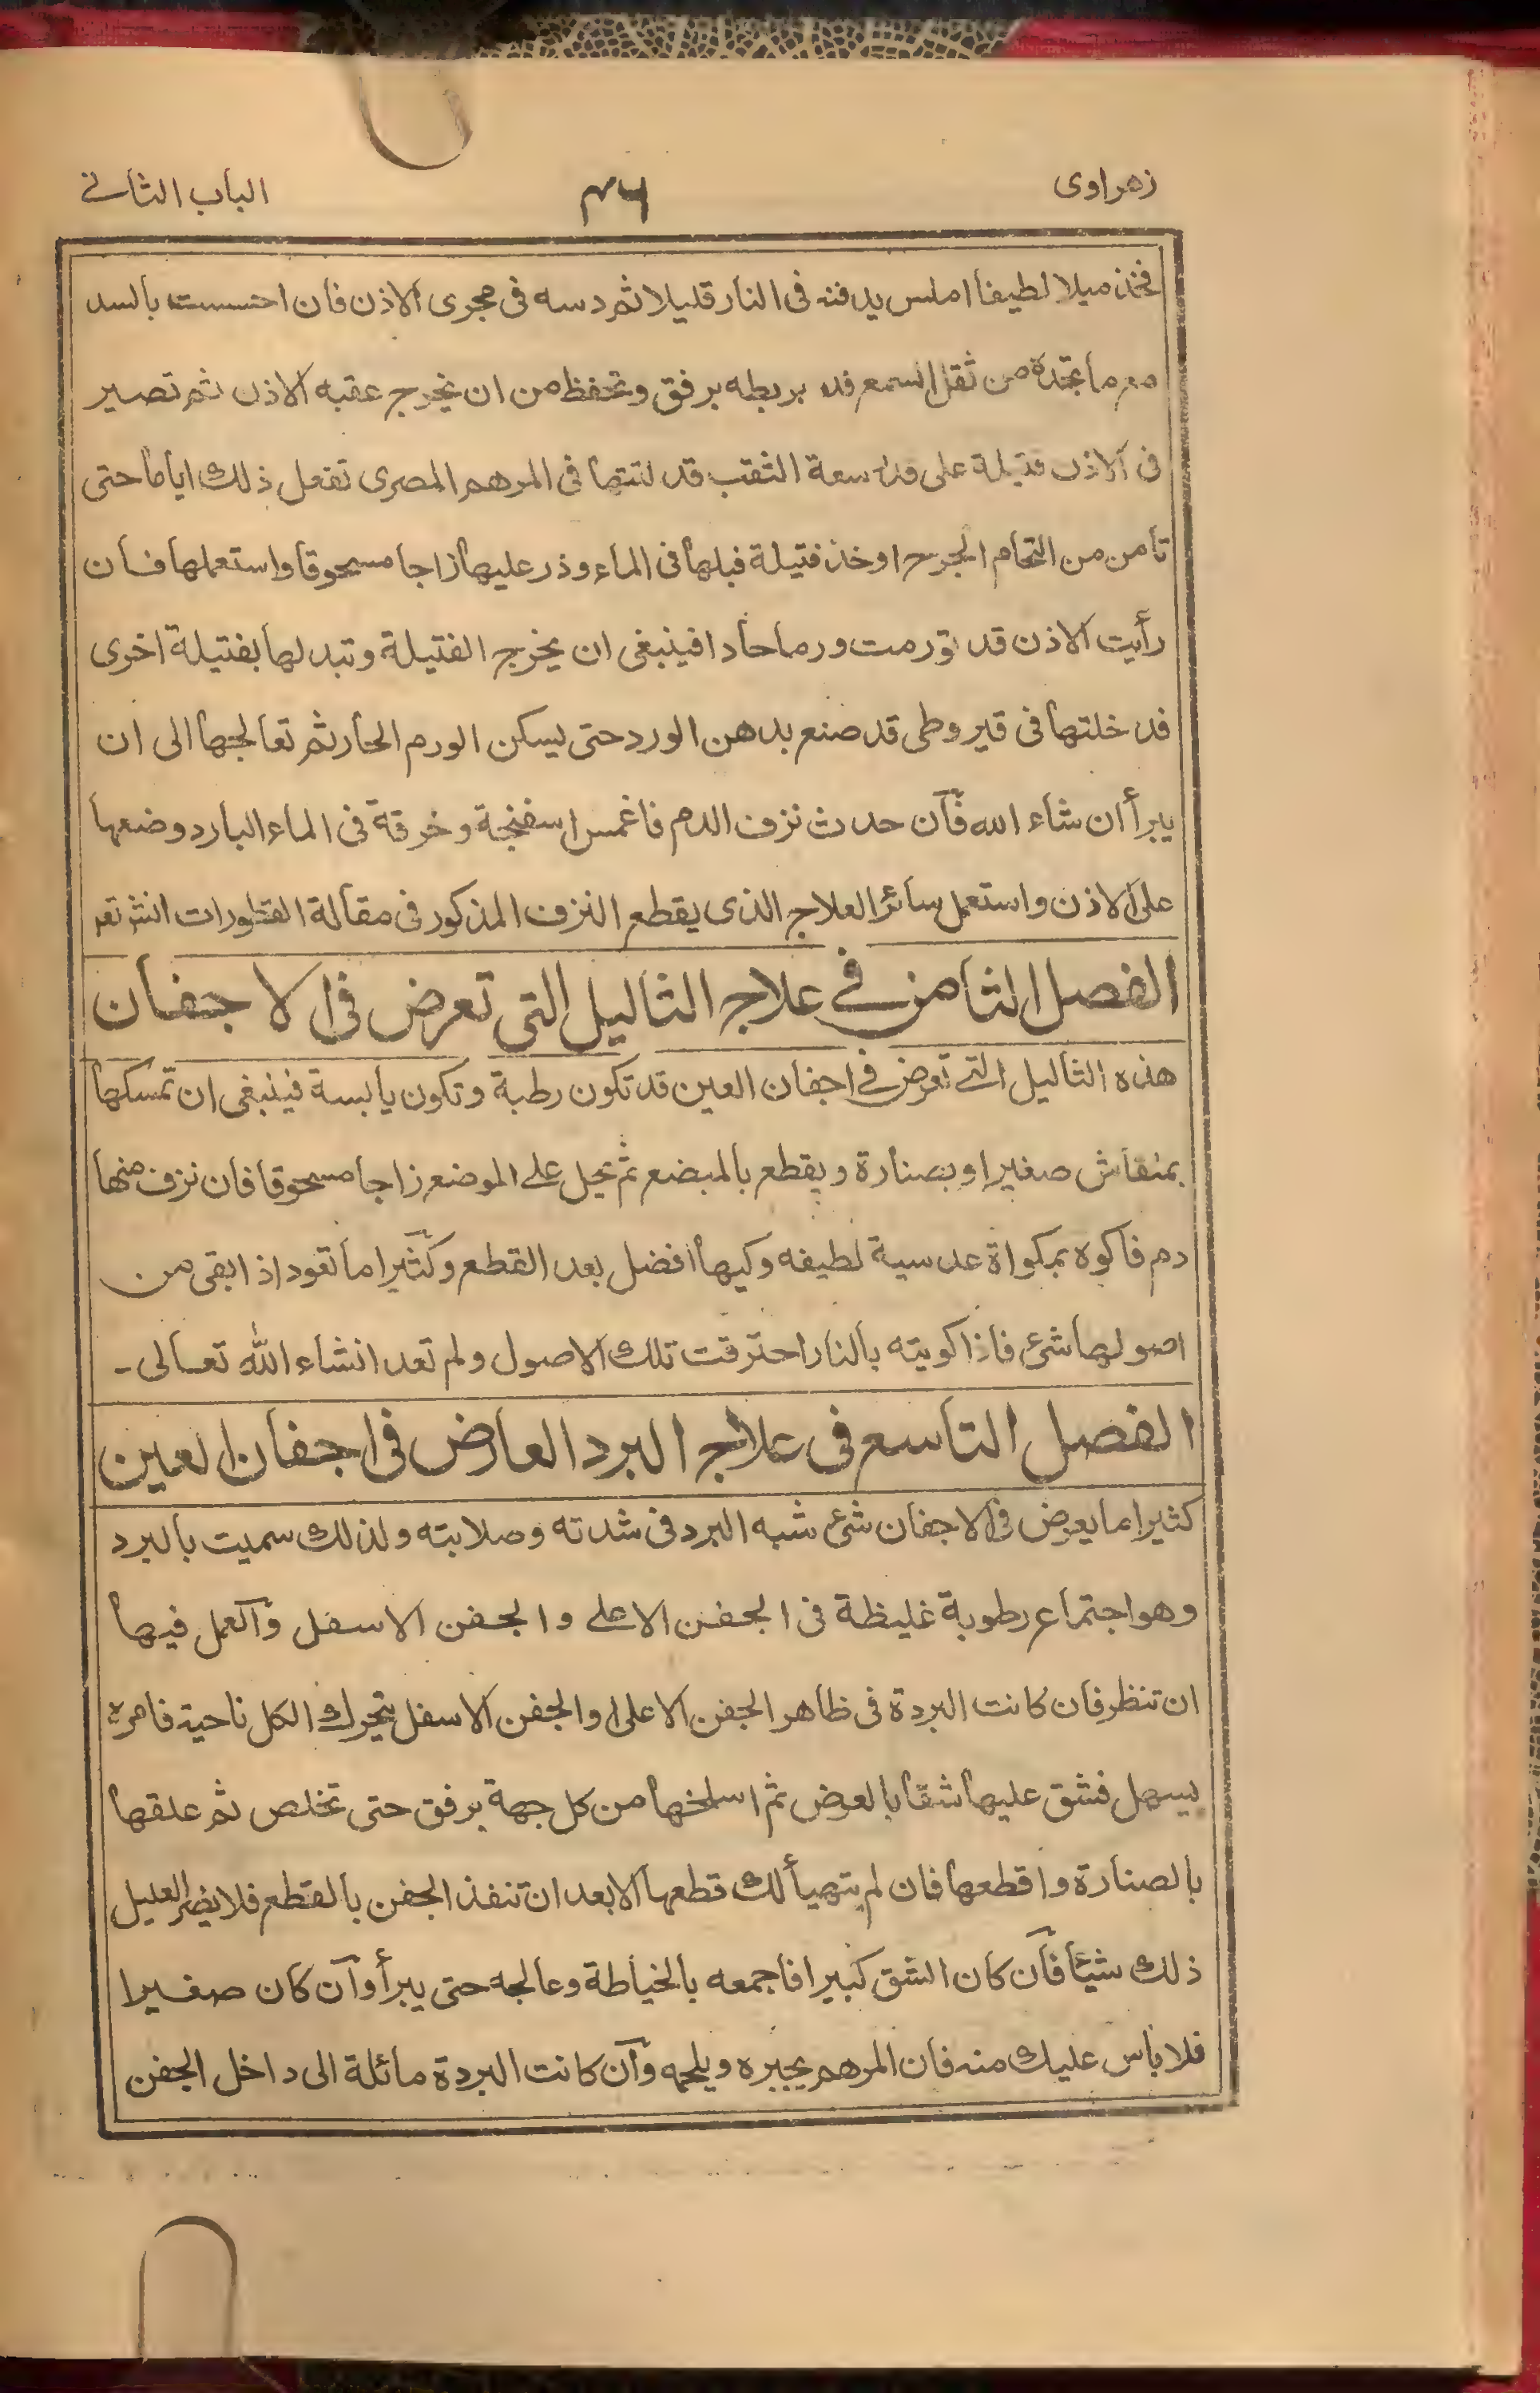 زهراوى ٣٦ الباب الثانے
فخذ ميلا لطيفا املس يدفنه فى النار قليلا ثم دسه فى مجرى الاذن فان احسست بالسد
مع ما تجدة من ثقل السمع فده بربطه برفق وتحفظ من ان يخرج عقبه الاذن ثم تصير
فى الاذن فتيلة على قدر سعة الثقب قد لتتها فى المرهم المصرى تفعل ذلك اياما حتى
تأمن من التحام الجرح اوخذ فتيلة فبلها فى الماء وذر عليها زاجا مسحوقا واستعملها فان
رأيت الاذن قد تورمت ورما حادا فينبغى ان يخرج الفتيلة وتبدلها بفتيلة اخرى
قد خلتها فى قيروطى قد صنع بدهن الورد حتى يسكن الورم الحار ثم تعالجها الى ان
يبرأ ان شاء الله فآن حدث نزف الدم فاغمس اسفنجة وخرقة فى الماء البارد وضعها
على الاذن واستعمل سائر العلاج الذى يقطع النزف المذكور فى مقالة القطورات انشرتعه
الفصل الثامن فے علاج الثاليل التى تعرض فى الاجفان
هذه الثاليل التے تعرض فے اجفان العين قد تكون رطبة وتكون يابسة فينبغى ان تمسكها
بمنقاش صغير اوبصنارة ويقطع بالمبضع ثم يحيل علے الموضع زاجا مسحوقا فان نزف منها
دم فاكوه بمكواة عدسية لطيفه وكيها افضل بعد القطع وكثيرا ما تعود اذا بقى من
اصولها شئ فاذا كويته بالنار احترقت تلك الاصول ولم تعد انشاء الله تعالى -
الفصل التاسع فى علاج البرد العارض فى اجفان العين
كثيرا ما يعرض فى الاجفان شئ شبه البرد فى شدته وصلابته ولذلك سميت بالبرد
وهو اجتماع رطوبة غليظة فى الجفن الاعلے والجفن الاسفل وآلعمل فيها
ان تنظر فان كانت البردة فى ظاهر الجفن الاعلى او الجفن الاسفل يتحرك الكل ناحية فامرة
يسهل فشق عليها شقا بالعرض ثم اسلخها من كل جهة برفق حتى تخلص ثم علقها
بالصنارة واقطعها فان لم يتهيأ لك قطعها الا بعد ان تنفذ الجفن بالقطع فلا يضر العليل
ذلك شيئا فآن كان الشق كبيرا فاجمعه بالخياطة وعالجه حتى يبرأ وآن كان صغيرا
فلا بأس عليك منه فان المرهم يجبره ويلحمه وآن كانت البردة مائلة الى داخل الجفن